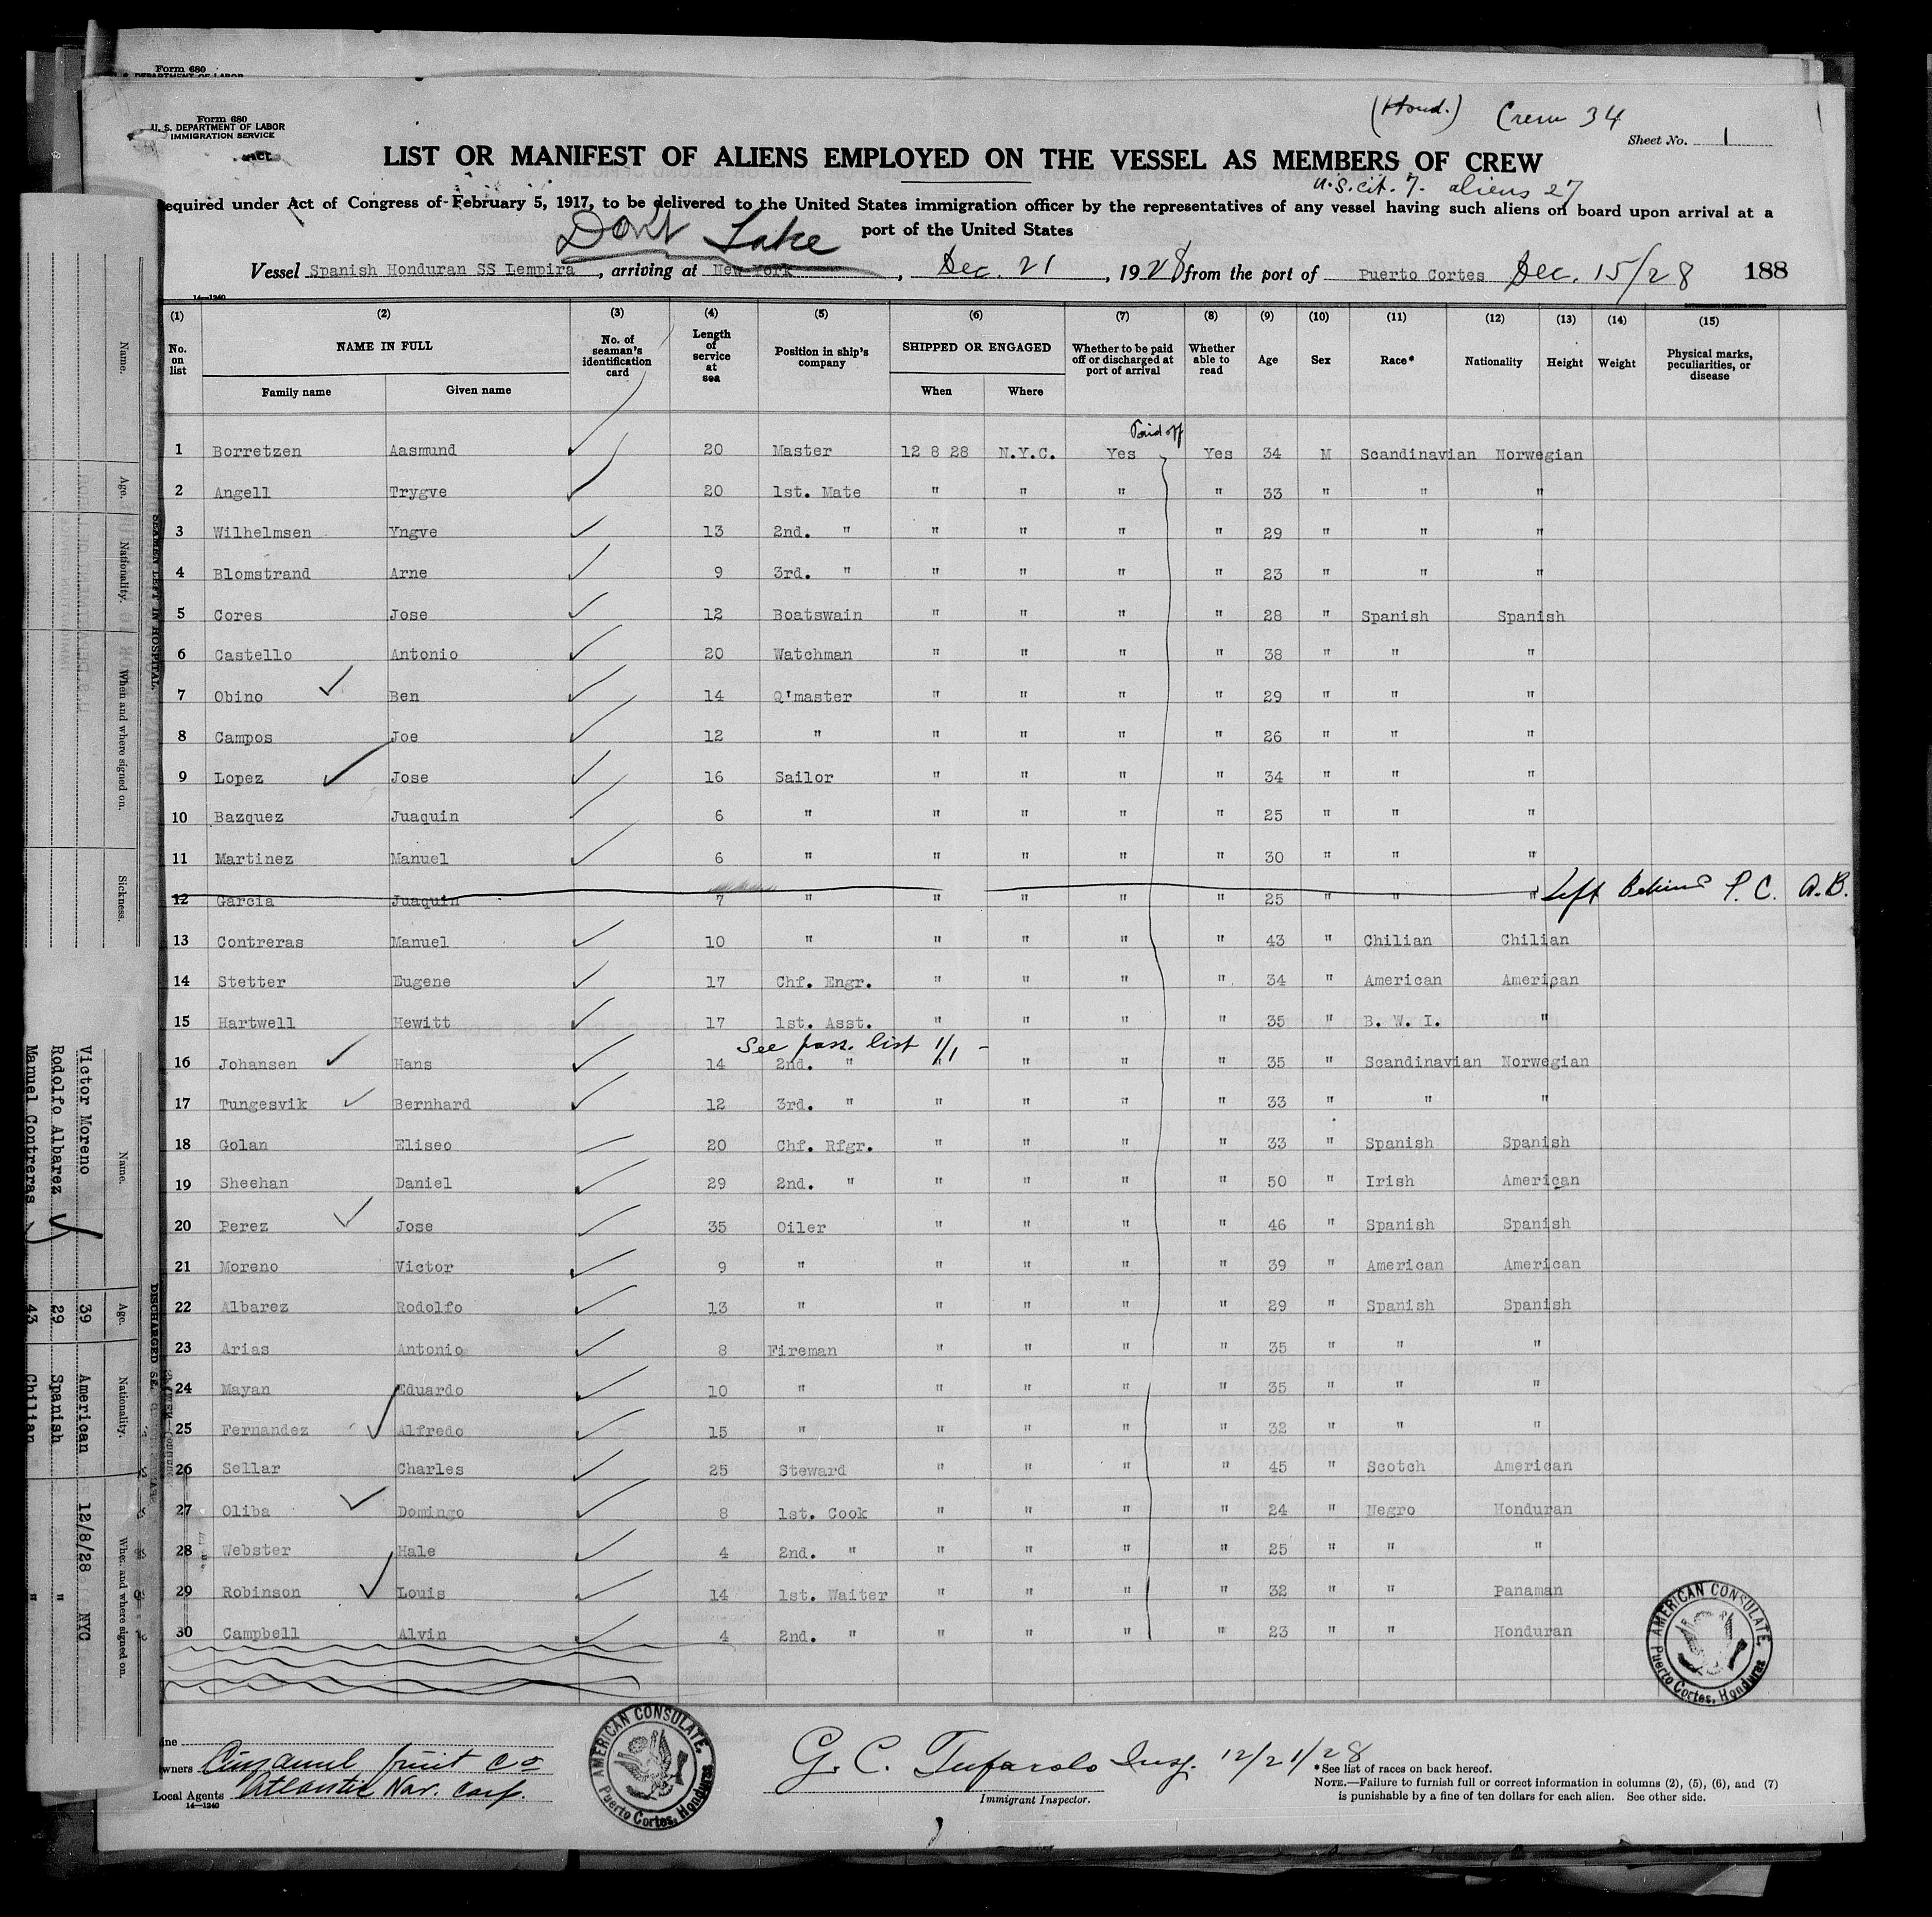 Form 680
S. DEPARTMENT OF LABOR
(Hond.) Crew 34
Form 680
U. S. DEPARTMENT OF LABOR
IMMIGRATION SERVICE
Sheet No. 1
LIST OR MANIFEST OF ALIENS EMPLOYED ON THE VESSEL AS MEMBERS OF CREW
U.S.cit. 7. aliens 27
equired under Act of Congress of February 5, 1917, to be delivered to the United States immigration officer by the representatives of any vessel having such aliens on board upon arrival at a
port of the United States
Don't Take
Vessel Spanish Honduran SS Lempira, arriving at New York, Dec. 21, 1928 from the port of Puerto Cortes Dec. 15/28 188
14—1240
(1) (2) (3) (4) (5) (6) (7) (8) (9) (10) (11) (12) (13) (14) (15)
No. on list NAME IN FULL No. of seaman's identification card Length of service at sea Position in ship's company SHIPPED OR ENGAGED Whether to be paid off or discharged at port of arrival Whether able to read Age Sex Race* Nationality Height Weight Physical marks, peculiarities, or disease
Family name Given name When Where
Paid off
1 Borretzen Aasmund 20 Master 12 8 28 N.Y.C. Yes Yes 34 M Scandinavian Norwegian
2 Angell Trygve 20 1st. Mate " " " " 33 " " "
3 Wilhelmsen Yngve 13 2nd. " " " " " 29 " " "
4 Blomstrand Arne 9 3rd. " " " " " 23 " " "
5 Cores Jose 12 Boatswain " " " " 28 " Spanish Spanish
6 Castello Antonio 20 Watchman " " " " 38 " " "
7 Obino Ben 14 Q'master " " " " 29 " " "
8 Campos Joe 12 " " " " " 26 " " "
9 Lopez Jose 16 Sailor " " " " 34 " " "
10 Bazquez Juaquin 6 " " " " " 25 " " "
11 Martinez Manuel 6 " " " " " 30 " " "
12 Garcia Juaquin 7 " " " " " 25 " " " Left Behind P. C. A.B.
13 Contreras Manuel 10 " " " " " 43 " Chilian Chilian
14 Stetter Eugene 17 Chf. Engr. " " " " 34 " American American
15 Hartwell Hewitt 17 1st. Asst. " " " " 35 " B. W. I. "
See pass. list 1/1 -
16 Johansen Hans 14 2nd. " " " " " 35 " Scandinavian Norwegian
17 Tungesvik Bernhard 12 3rd. " " " " " 33 " " "
18 Golan Eliseo 20 Chf. Rfgr. " " " " 33 " Spanish Spanish
19 Sheehan Daniel 29 2nd. " " " " " 50 " Irish American
20 Perez Jose 35 Oiler " " " " 46 " Spanish Spanish
21 Moreno Victor 9 " " " " " 39 " American American
22 Albarez Rodolfo 13 " " " " " 29 " Spanish Spanish
23 Arias Antonio 8 Fireman " " " " 35 " " "
24 Mayan Eduardo 10 " " " " " 35 " " "
25 Fernandez Alfredo 15 " " " " " 32 " " "
26 Sellar Charles 25 Steward " " " " 45 " Scotch American
27 Oliba Domingo 8 1st. Cook " " " " 24 " Negro Honduran
28 Webster Hale 4 2nd. " " " " " 25 " " "
29 Robinson Louis 14 1st. Waiter " " " " 32 " " Panaman
30 Campbell Alvin 4 2nd. " " " " " 23 " " Honduran
AMERICAN CONSULATE, Puerto Cortes, Honduras
ine
wners fruit Co
Local Agents Atlantic Nav. Corp.
14—1240
AMERICAN CONSULATE, Puerto Cortes, Honduras
G. C. Tufarolo Insp. 12/21/28
Immigrant Inspector.
*See list of races on back hereof.
NOTE.—Failure to furnish full or correct information in columns (2), (5), (6), and (7)
is punishable by a fine of ten dollars for each alien. See other side.
Name. Age. Nationality. When and where signed on. Sickness.
SEAMEN LEFT IN HOSPITAL
Name. Age. Nationality. When and where signed on.
DISCHARGED SE
Victor Moreno 39 American 12/8/28 NYC
Rodolfo Albarez 29 Spanish " "
Manuel Contreras 43 Chilian " "